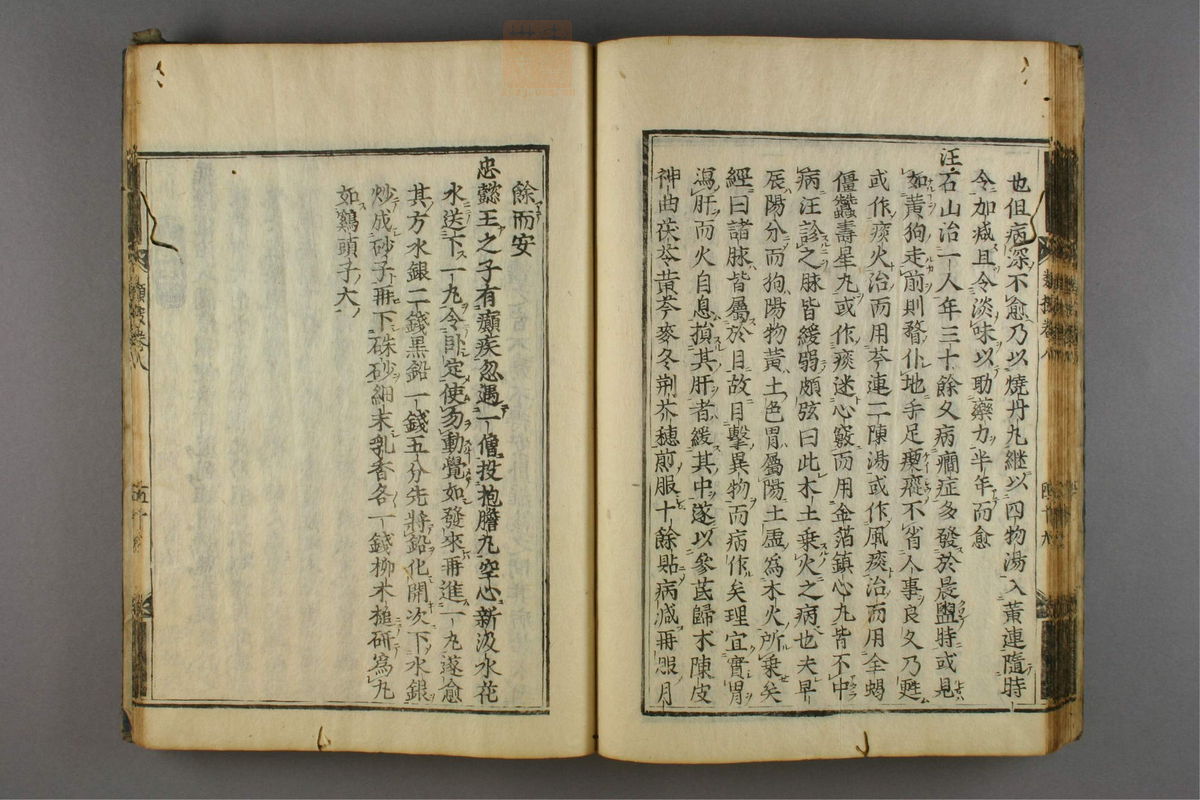 也但病深不愈乃以燒丹丸継以四物湯入黃連隨時
令加减且令淡味以助藥力半年而愈
汪石山治一人年三十餘久病癎症多發於晨盥時或見
如黃狗走前則瞀仆地手足瘈瘲不省人事良久乃甦
或作痰火治而用芩連二陳湯或作風痰治而用全蝎
僵蠶壽星丸或作痰迷心竅而用金箔鎮心丸皆不中
病汪診之脉皆緩弱頗弦曰此木土乗火之病也夫早
辰陽分而狗陽物黃土色胃屬陽土虛為木火所乗矣
經曰諸脉皆屬於目故目擊異物而病作矣理宜實胃
瀉肝而火自息損其肝者緩其中遂以參芪歸术陳皮
神曲茯苓黃芩麥冬荆芥穗煎服十餘貼病减再服月
類按卷八
餘而安
忠懿王之子有癲疾忽遇一僧投抱膽丸空心新汲水花
水送下一丸令卧定使勿動覺如發來再進一丸遂愈
其方水銀二錢黒鉛一錢五分先將鉛化開次下水銀
炒成砂子再下硃砂細末乳香各一錢柳木槌研為丸
如鷄頭子大
類按卷八